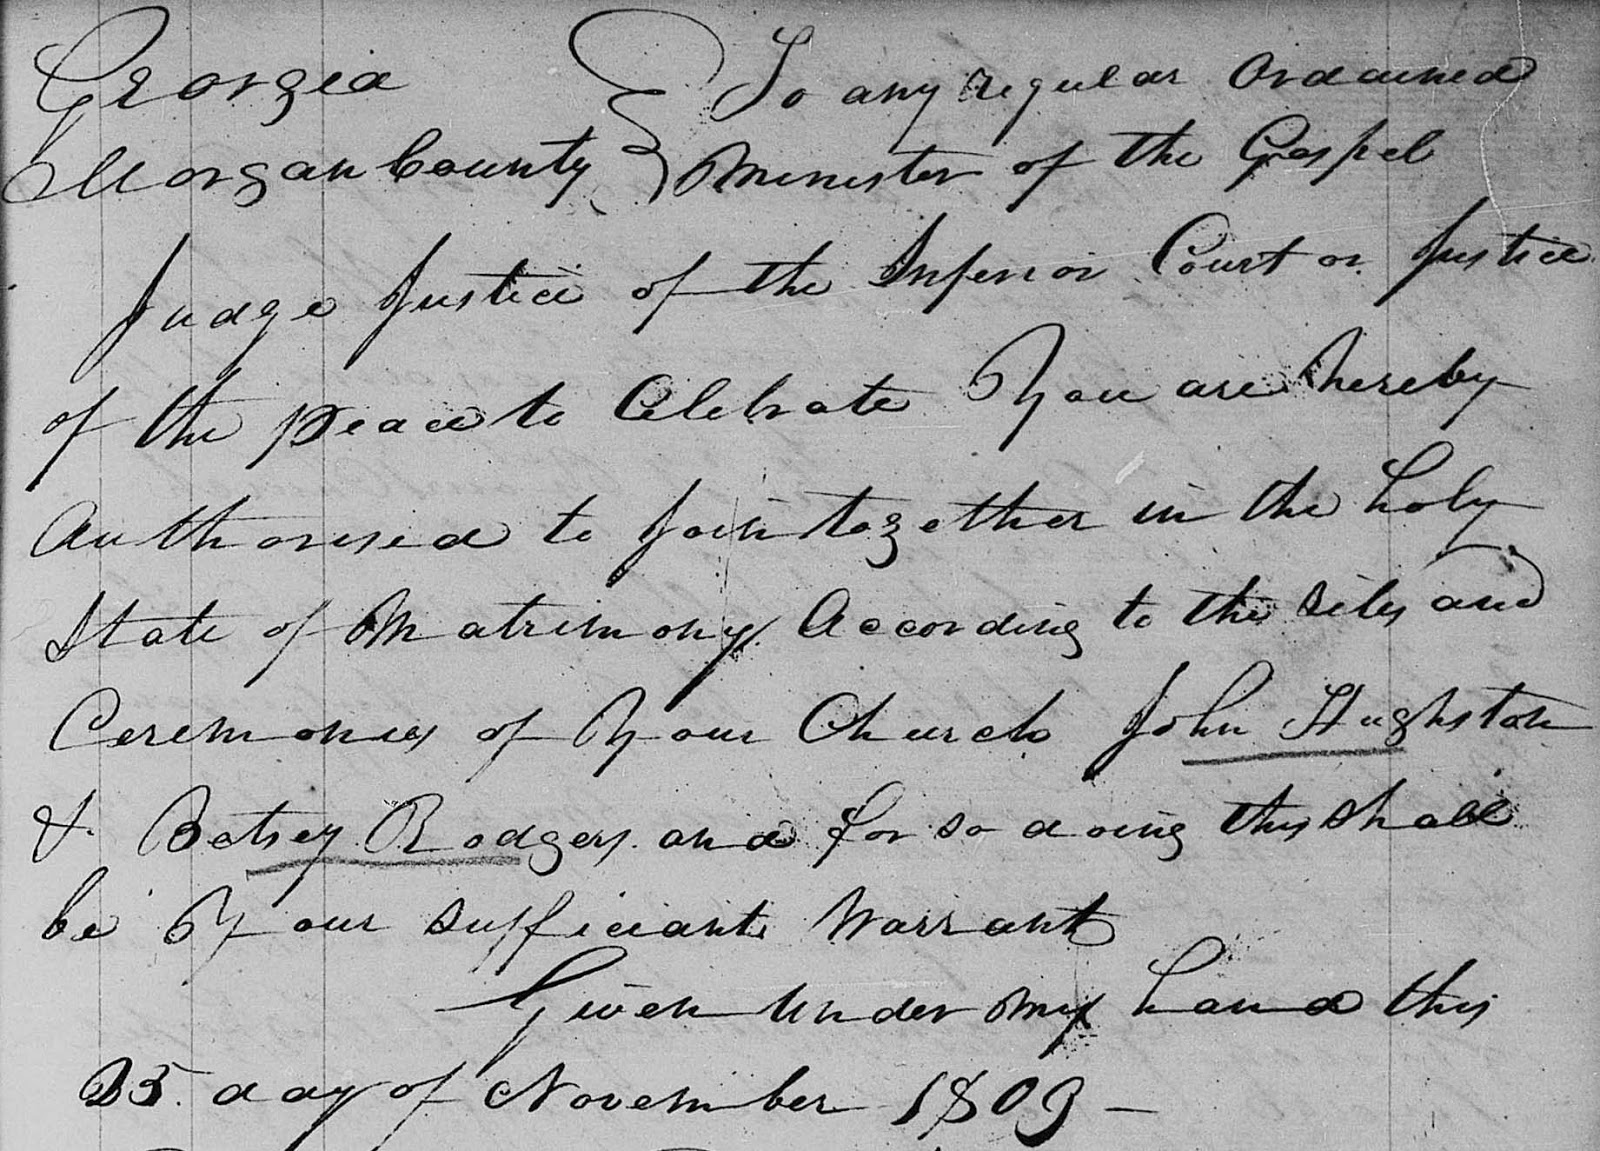 Georgia } To any regular Ordained
Morgan County } Minister of the Gospel
Judge Justice of the Inferior Court or Justice
of the peace to Celebrate You are hereby
Authorised to join together in the holy
State of Matrimony According to the rites and
Ceremonies of Your Church John Hughston
& Betsey Rodgers and for so doing this shall
be Your sufficiant Warrant
Given under my hand this
25 day of November 1809 —